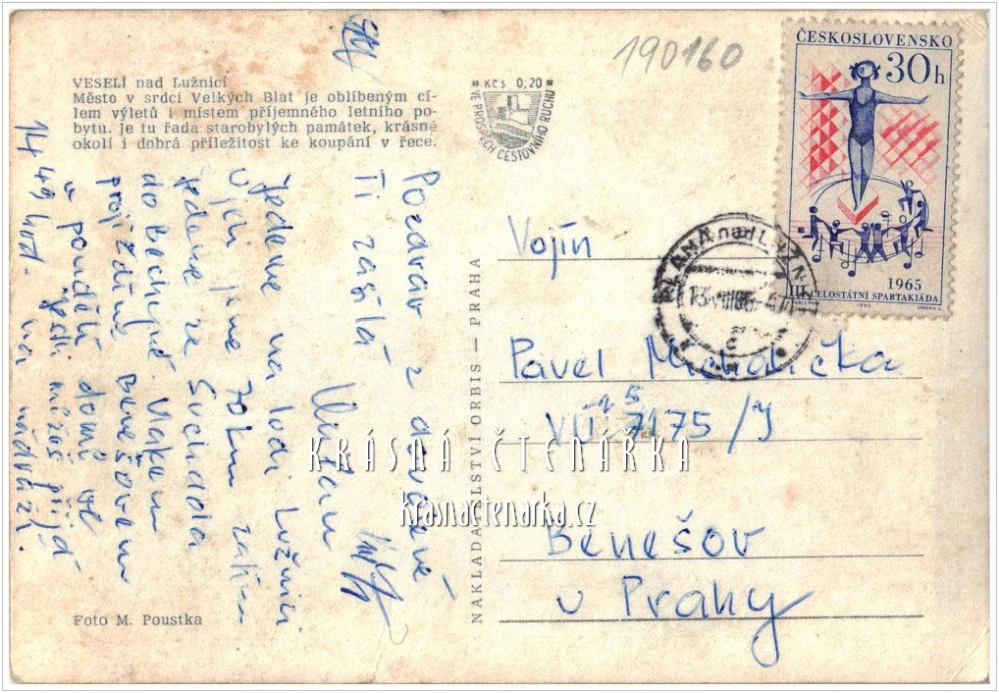 190160
VESELÍ nad Lužnicí
Město v srdci Velkých Blat je oblíbeným cí-
lem výletů i místem příjemného letního po-
bytu. Je tu řada starobylých památek, krásné
okolí i dobrá příležitost ke koupání v řece.
Kčs 0,20
VE PROSPĚCH CESTOVNÍHO RUCHU
ČESKOSLOVENSKO
30h
1965
III. CELOSTÁTNÍ SPARTAKIÁDA
PLANÁ nad LUŽN
Pozdrav z dovolené
Ti zasílá Milan
Jedeme na lodi Lužnici
ujeli jsme 70 km zatím
jedeme ze Suchdola
do Bechyně. Vlakem
projíždíme Benešovem
v pondělí domů ve
14 49 hod. Jestli můžeš přijď
na nádraží.
Vojín
Pavel Michalička
VÚ 7175/J
Benešov
u Prahy
NAKLADATELSTVÍ ORBIS — PRAHA
Foto M. Poustka
KRÁSNÁ ČTENÁŘKA
krasnactenarka.cz